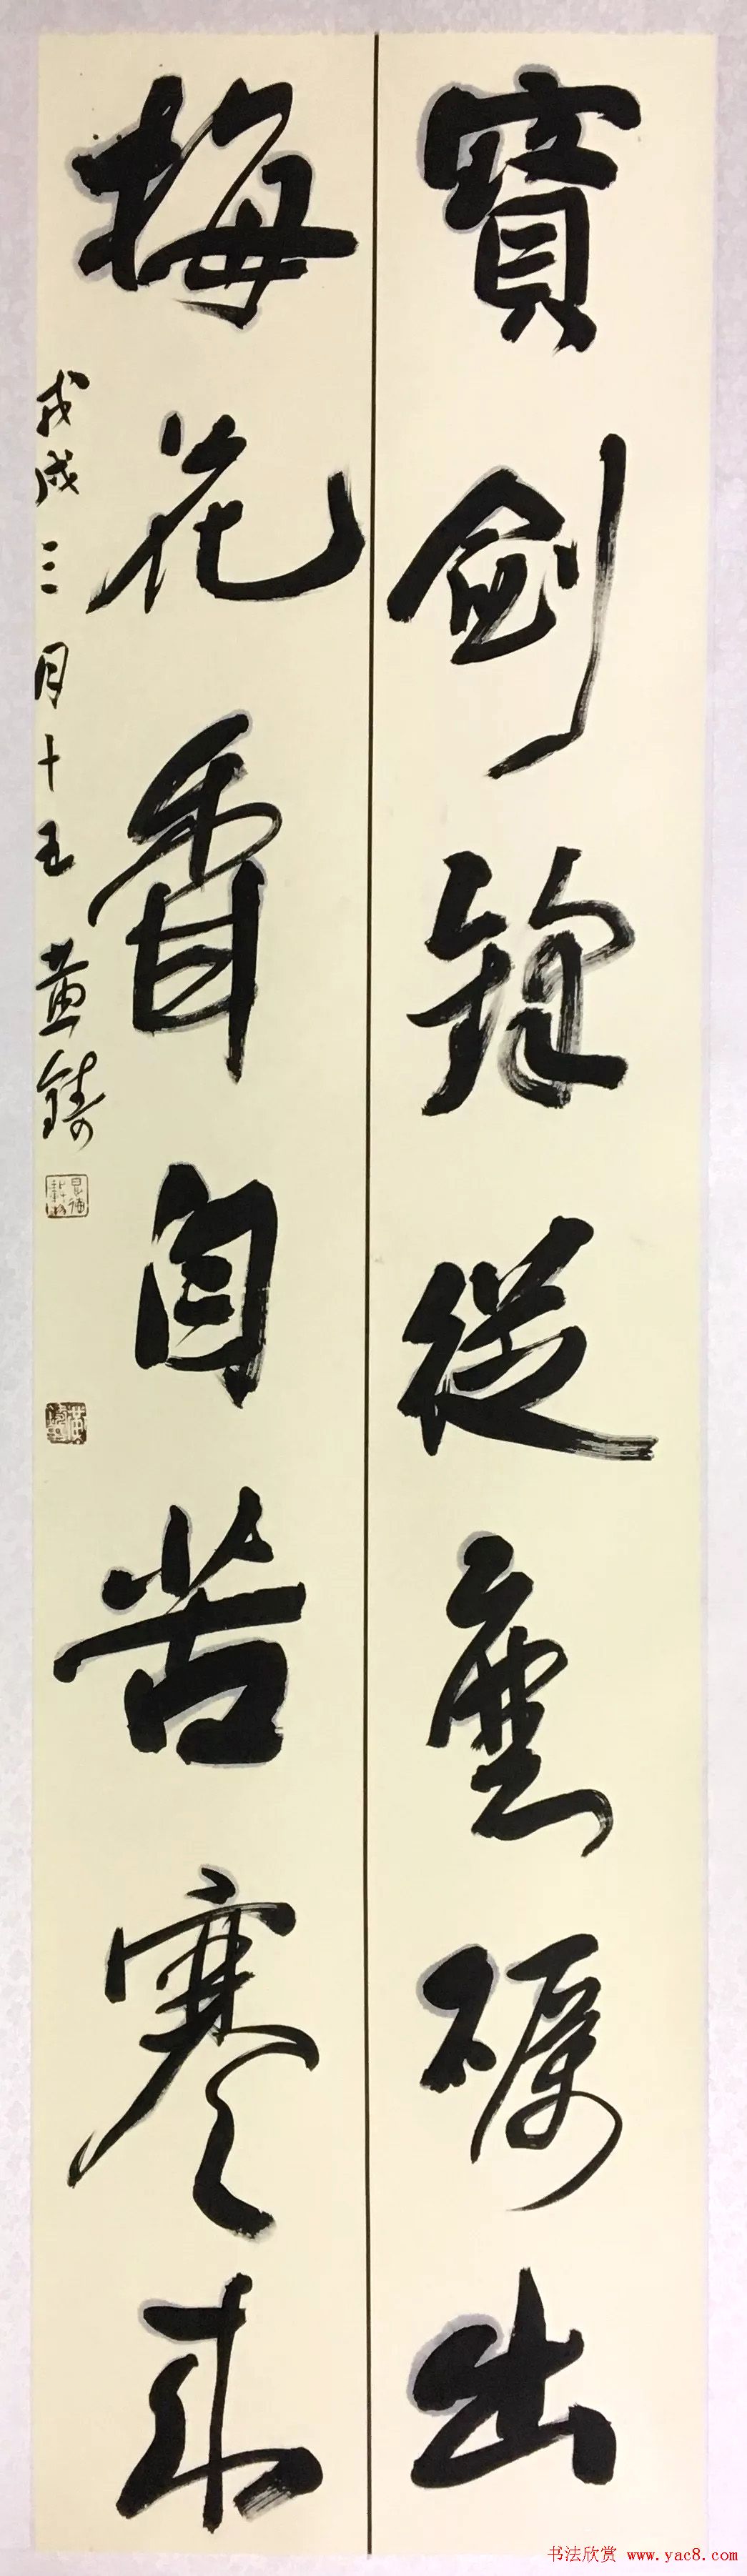 寶劍鋒從磨礪出
梅花香自苦寒來
戊戌三月十五 黄鑄
书法欣赏 www.yac8.com